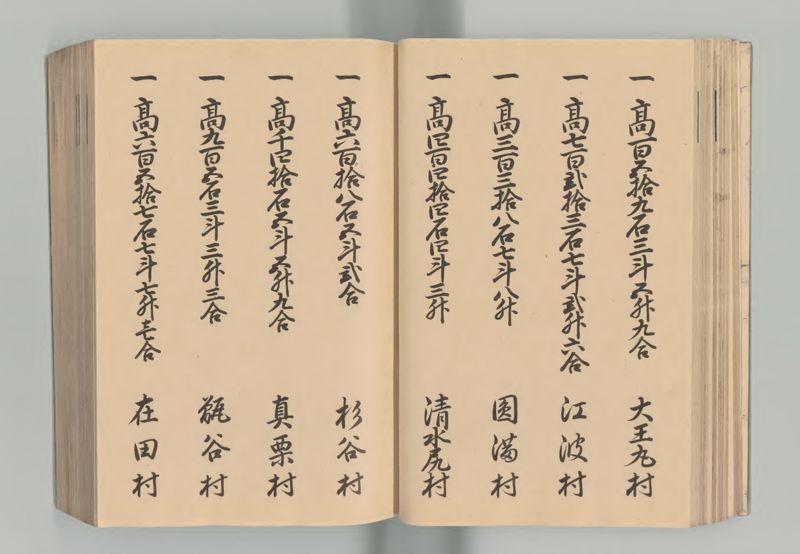 一 高百五拾九石三斗五升九合 大王丸村
一 高七百弐拾三石七斗弐升六合 江波村
一 高三百三拾八石七斗八升 圓満村
一 高四百四拾四石四斗三升 清水尻村
一 高六百拾八石五斗弐合 杉谷村
一 高千四拾石五斗五升九合 真栗村
一 高九百五石三斗三升三合 甑谷村
一 高六百五拾七石七斗七升壱合 在田村